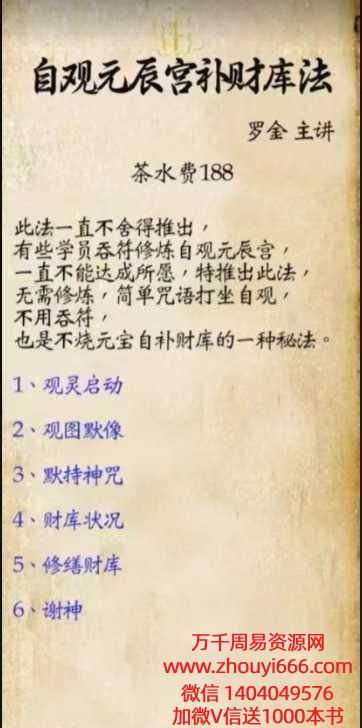 自观元辰宫补财库法
罗金 主讲
茶水费188
此法一直不舍得推出，
有些学员吞符修炼自观元辰宫，
一直不能达成所愿，特推出此法，
无需修炼，简单咒语打坐自观，
不用吞符，
也是不烧元宝自补财库的一种秘法。
1、观灵启动
2、观图默像
3、默持神咒
4、财库状况
5、修缮财库
6、谢神
万千周易资源网
www.zhouyi666.com
微信 1404049576
加微V信送1000本书